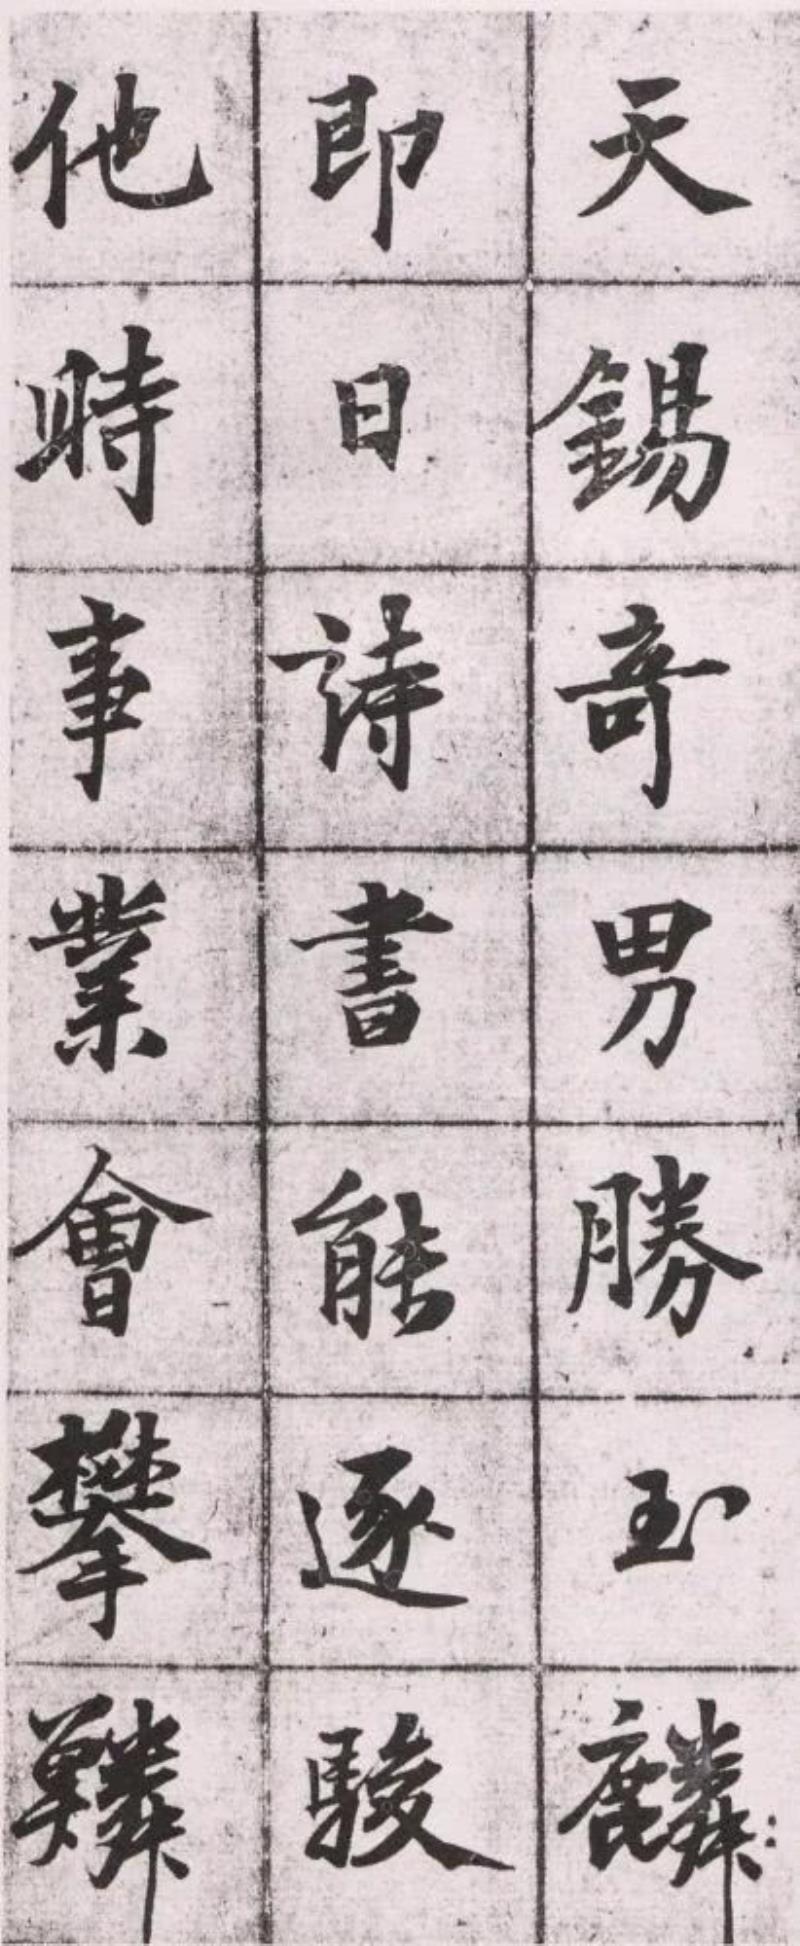 天錫奇男勝玉麟
即日詩書能逐駿
他時事業會攀鱗